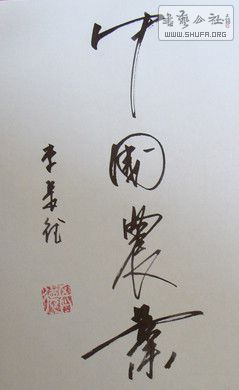 中國農業
李長征
書藝公社
WWW.SHUFA.ORG